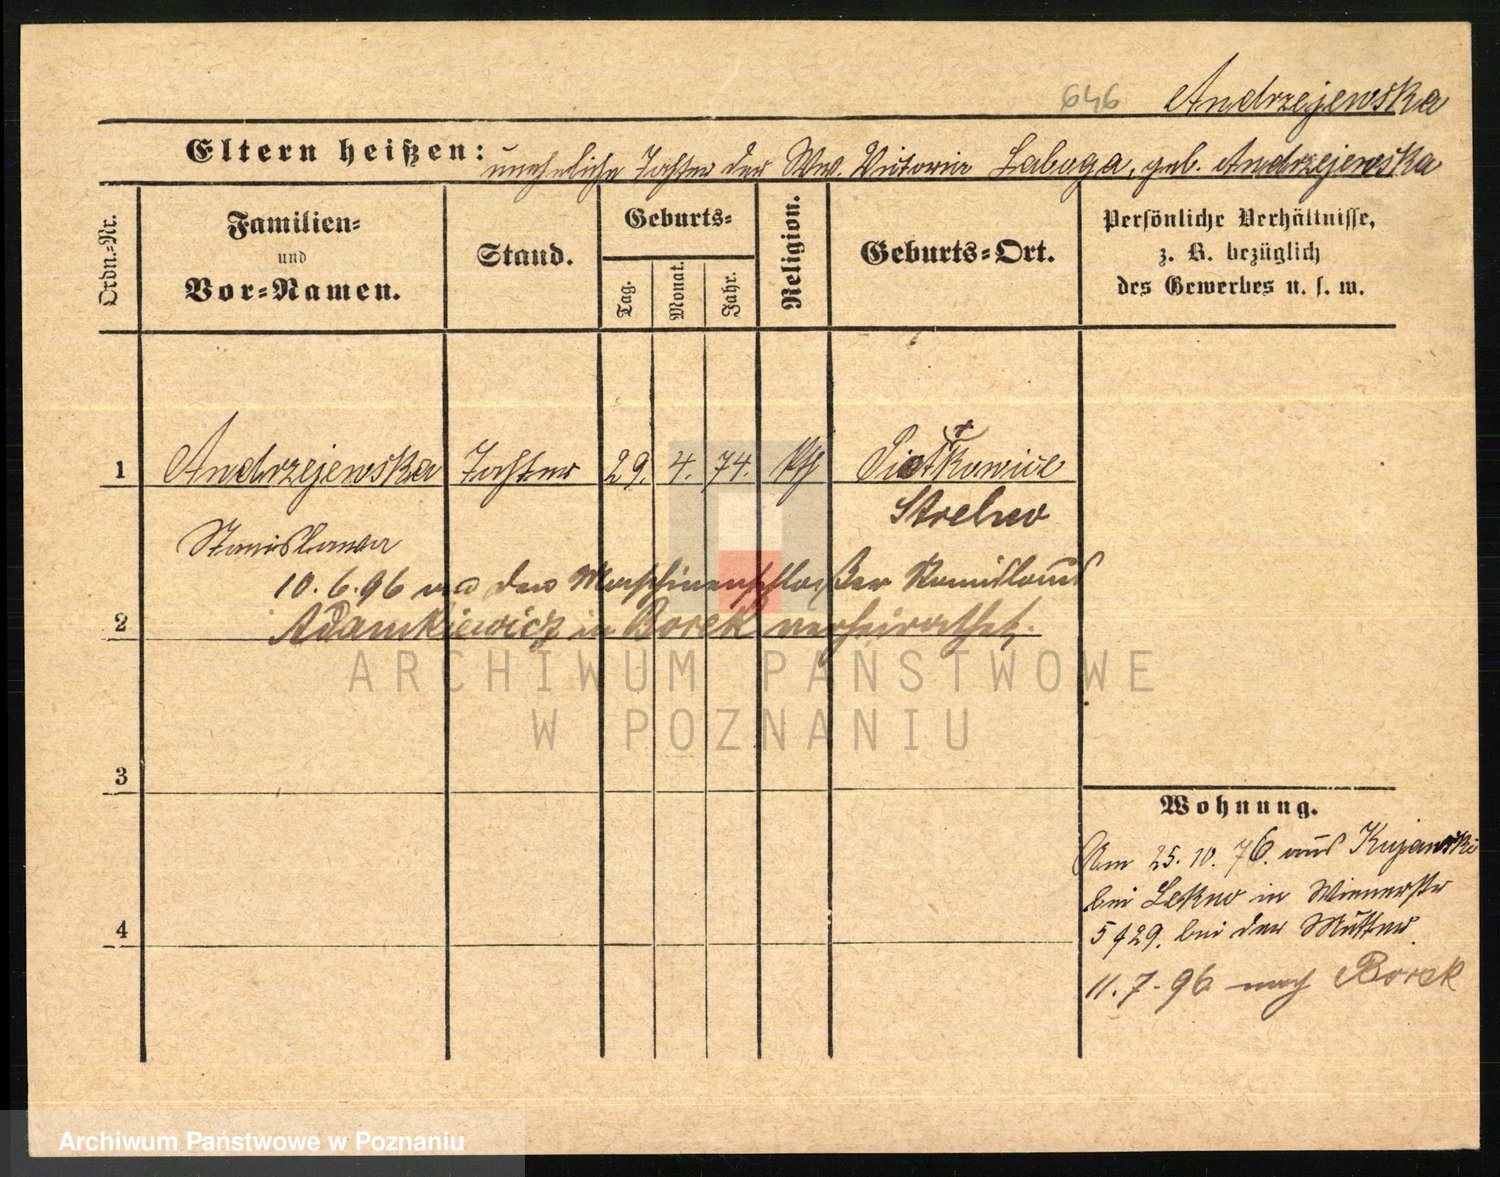 646 Andrzejewska
Eltern heißen: uneheliche Tochter der Ww. Victoria Labuga, geb. Andrzejewska
Ordn.-Nr.
Familien-
und
Vor-Namen.
Stand.
Geburts-
Tag.
Monat.
Jahr.
Religion.
Geburts-Ort.
Persönliche Verhältnisse,
z. B. bezüglich
des Gewerbes u. s. w.
1 Andrzejewska Tochter 29. 4. 74. kth
Strelno
Stanislawa
10. 6. 96 an den Maschinenschlosser
2 Adamkiewicz in Borek verheirathet.
3
4
Wohnung.
Am 25. 10. 96. aus Kujawski
bei Lekno in Wienerstr
5 bei der Mutter
11. 7. 96 nach Borek
ARCHIWUM PAŃSTWOWE
W POZNANIU
Archiwum Państwowe w Poznaniu